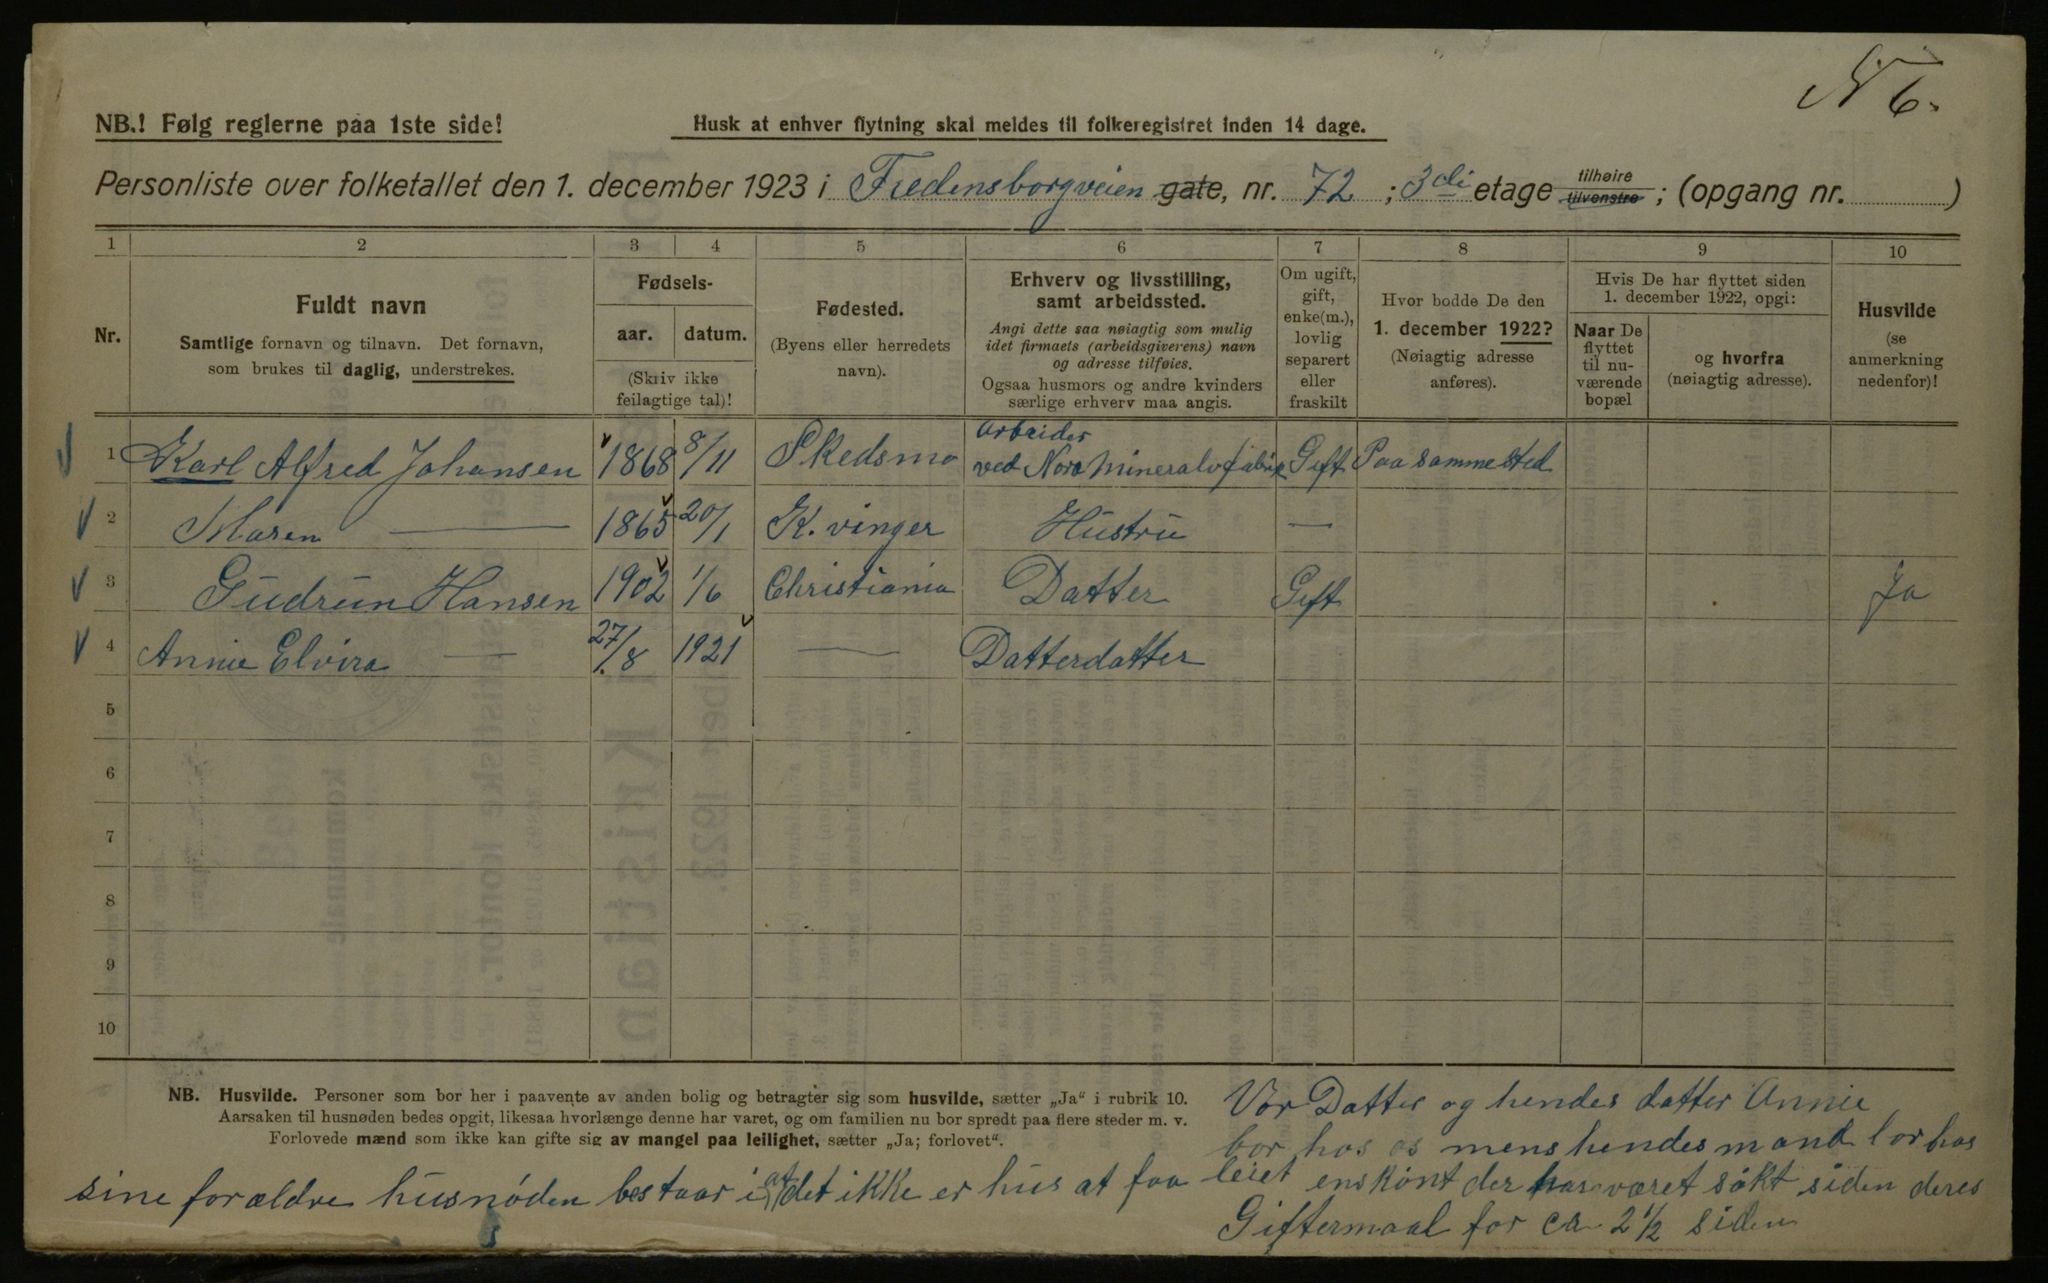 N 6.
NB.! Følg reglerne paa 1ste side!
Husk at enhver flytning skal meldes til folkeregistret inden 14 dage.
Personliste over folketallet den 1. december 1923 i Fredensborgveien gate, nr. 72 ; 3di etage tilhøire tilvenstre ; (opgang nr. )
1 2 3 4 5 6 7 8 9 10
Nr.
Fuldt navn
Samtlige fornavn og tilnavn. Det fornavn,
som brukes til daglig, understrekes.
Fødsels-
aar. datum.
(Skriv ikke
feilagtige tal)!
Fødested.
(Byens eller herredets
navn).
Erhverv og livsstilling,
samt arbeidssted.
Angi dette saa nøiagtig som mulig
idet firmaets (arbeidsgiverens) navn
og adresse tilføies.
Ogsaa husmors og andre kvinders
særlige erhverv maa angis.
Om ugift,
gift,
enke(m.),
lovlig
separert
eller
fraskilt
Hvor bodde De den
1. december 1922?
(Nøiagtig adresse
anføres).
Hvis De har flyttet siden
1. december 1922, opgi:
Naar De
flyttet
til nu-
værende
bopæl
og hvorfra
(nøiagtig adresse).
Husvilde
(se
anmerkning
nedenfor)!
1 Karl Alfred Johansen 1868 8/11 Skedsmo Arbeider ved Nora Mineralvfabrik Gift Paa samme sted
2 Maren — 1865 20/1 K.vinger Hustru —
3 Gudrun Hansen 1902 1/6 Christiania Datter Gift Ja
4 Annie Elvira — 27/8 1921 — Datterdatter
5
6
7
8
9
10
NB. Husvilde. Personer som bor her i paavente av anden bolig og betragter sig som husvilde, sætter „Ja“ i rubrik 10.
Aarsaken til husnøden bedes opgit, likesaa hvorlænge denne har varet, og om familien nu bor spredt paa flere steder m. v.
Forlovede mænd som ikke kan gifte sig av mangel paa leilighet, sætter „Ja; forlovet“.
Vor Datter og hendes datter Annie
bor hos os mens hendes mand bor hos
sine forældre husnøden bestaar i at det ikke er hus at faa leiet enskønt der har været søkt siden deres
Giftermaal for ca 2 1/2 siden